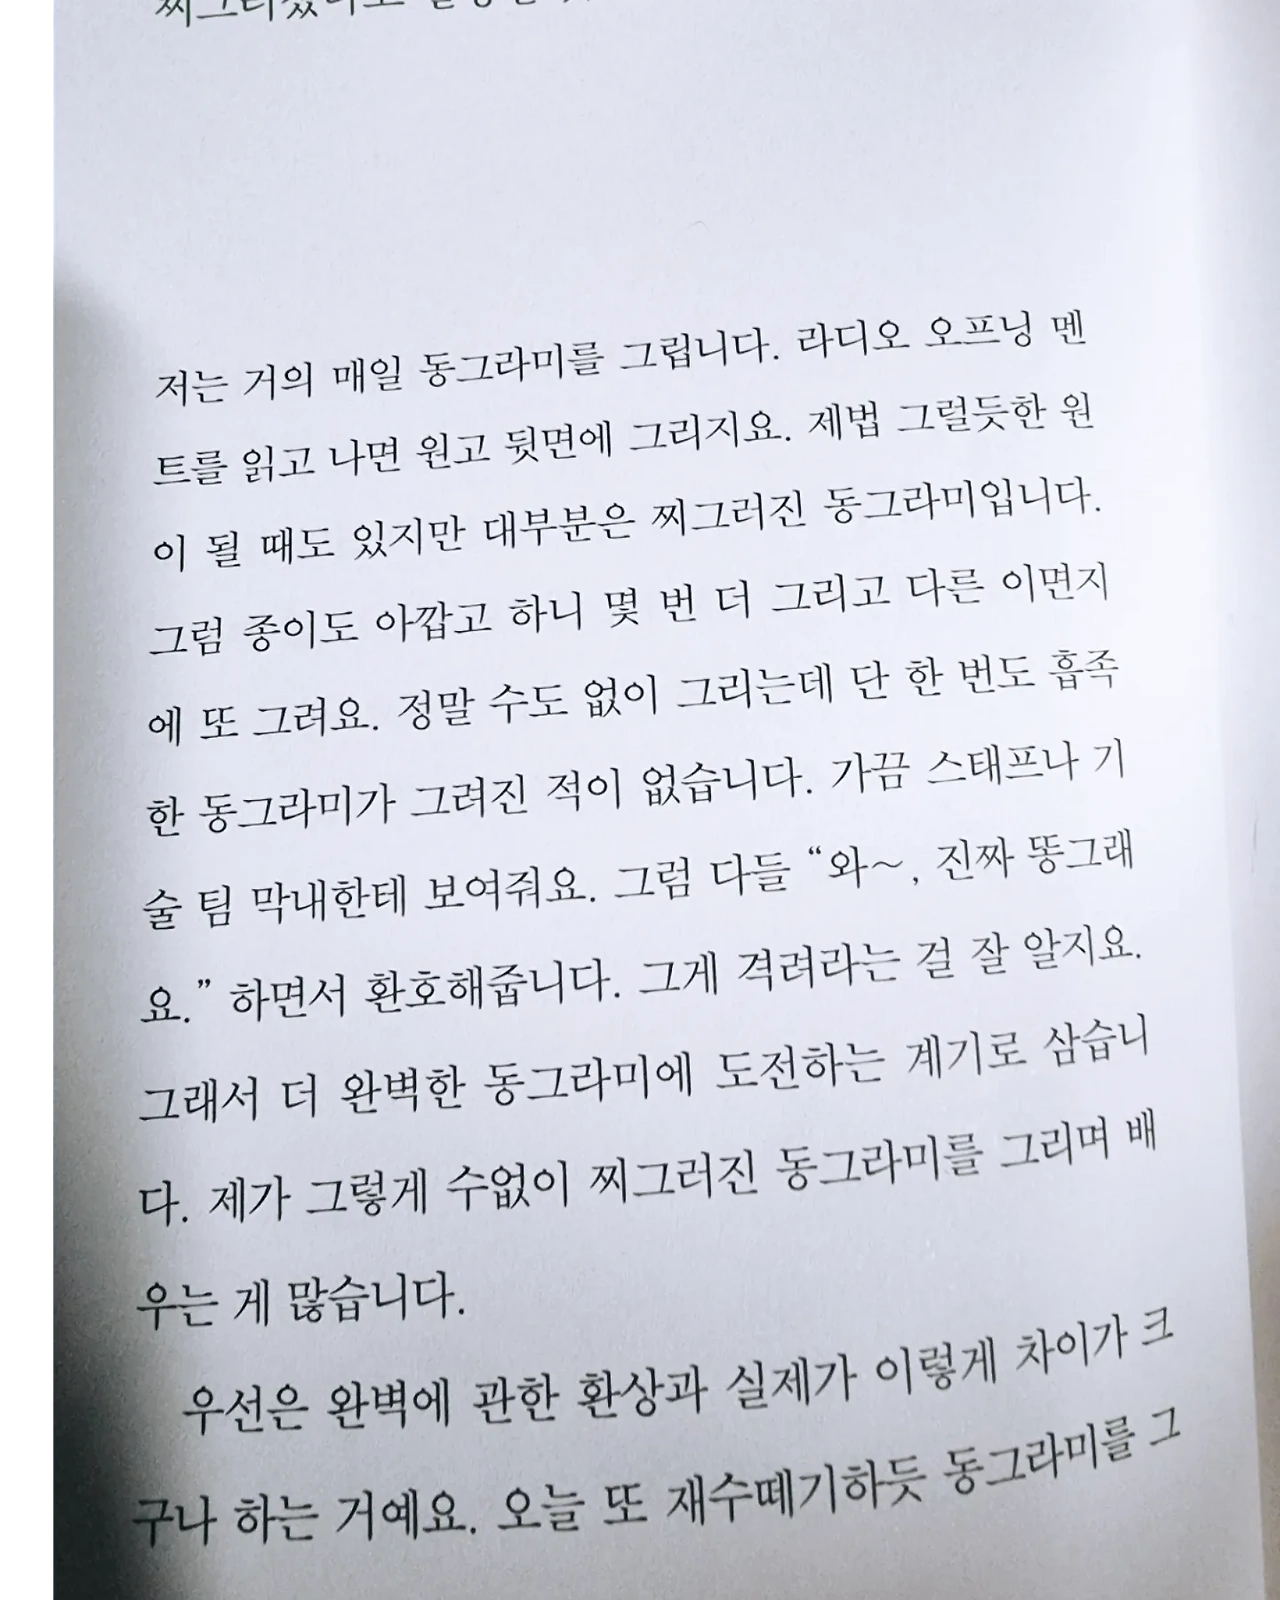 저는 거의 매일 동그라미를 그립니다. 라디오 오프닝 멘
트를 읽고 나면 원고 뒷면에 그리지요. 제법 그럴듯한 원
이 될 때도 있지만 대부분은 찌그러진 동그라미입니다.
그럼 종이도 아깝고 하니 몇 번 더 그리고 다른 이면지
에 또 그려요. 정말 수도 없이 그리는데 단 한 번도 흡족
한 동그라미가 그려진 적이 없습니다. 가끔 스태프나 기
술 팀 막내한테 보여줘요. 그럼 다들 “와~, 진짜 똥그래
요.” 하면서 환호해줍니다. 그게 격려라는 걸 잘 알지요.
그래서 더 완벽한 동그라미에 도전하는 계기로 삼습니
다. 제가 그렇게 수없이 찌그러진 동그라미를 그리며 배
우는 게 많습니다.
우선은 완벽에 관한 환상과 실제가 이렇게 차이가 크
구나 하는 거예요. 오늘 또 재수떼기하듯 동그라미를 그